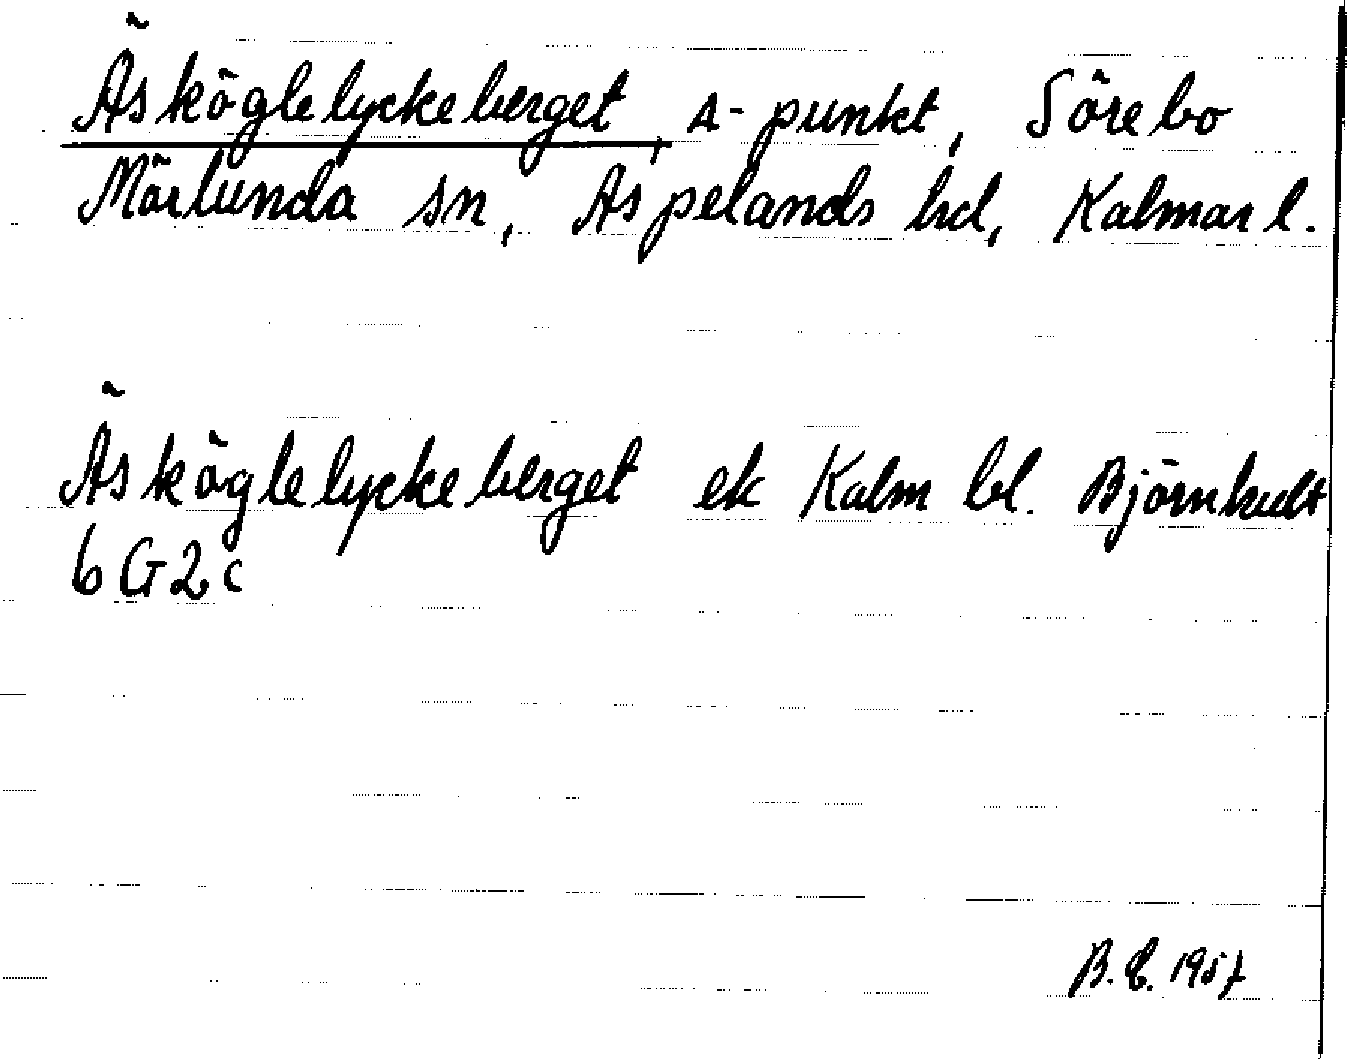 Äsköglelyckeberget, △-punkt, Sörebo
Mörlunda sn, Aspelands hd, Kalmar l.
Äsköglelyckeberget ek Kalm bl. Björnhult
6G2c
B. E. 1957